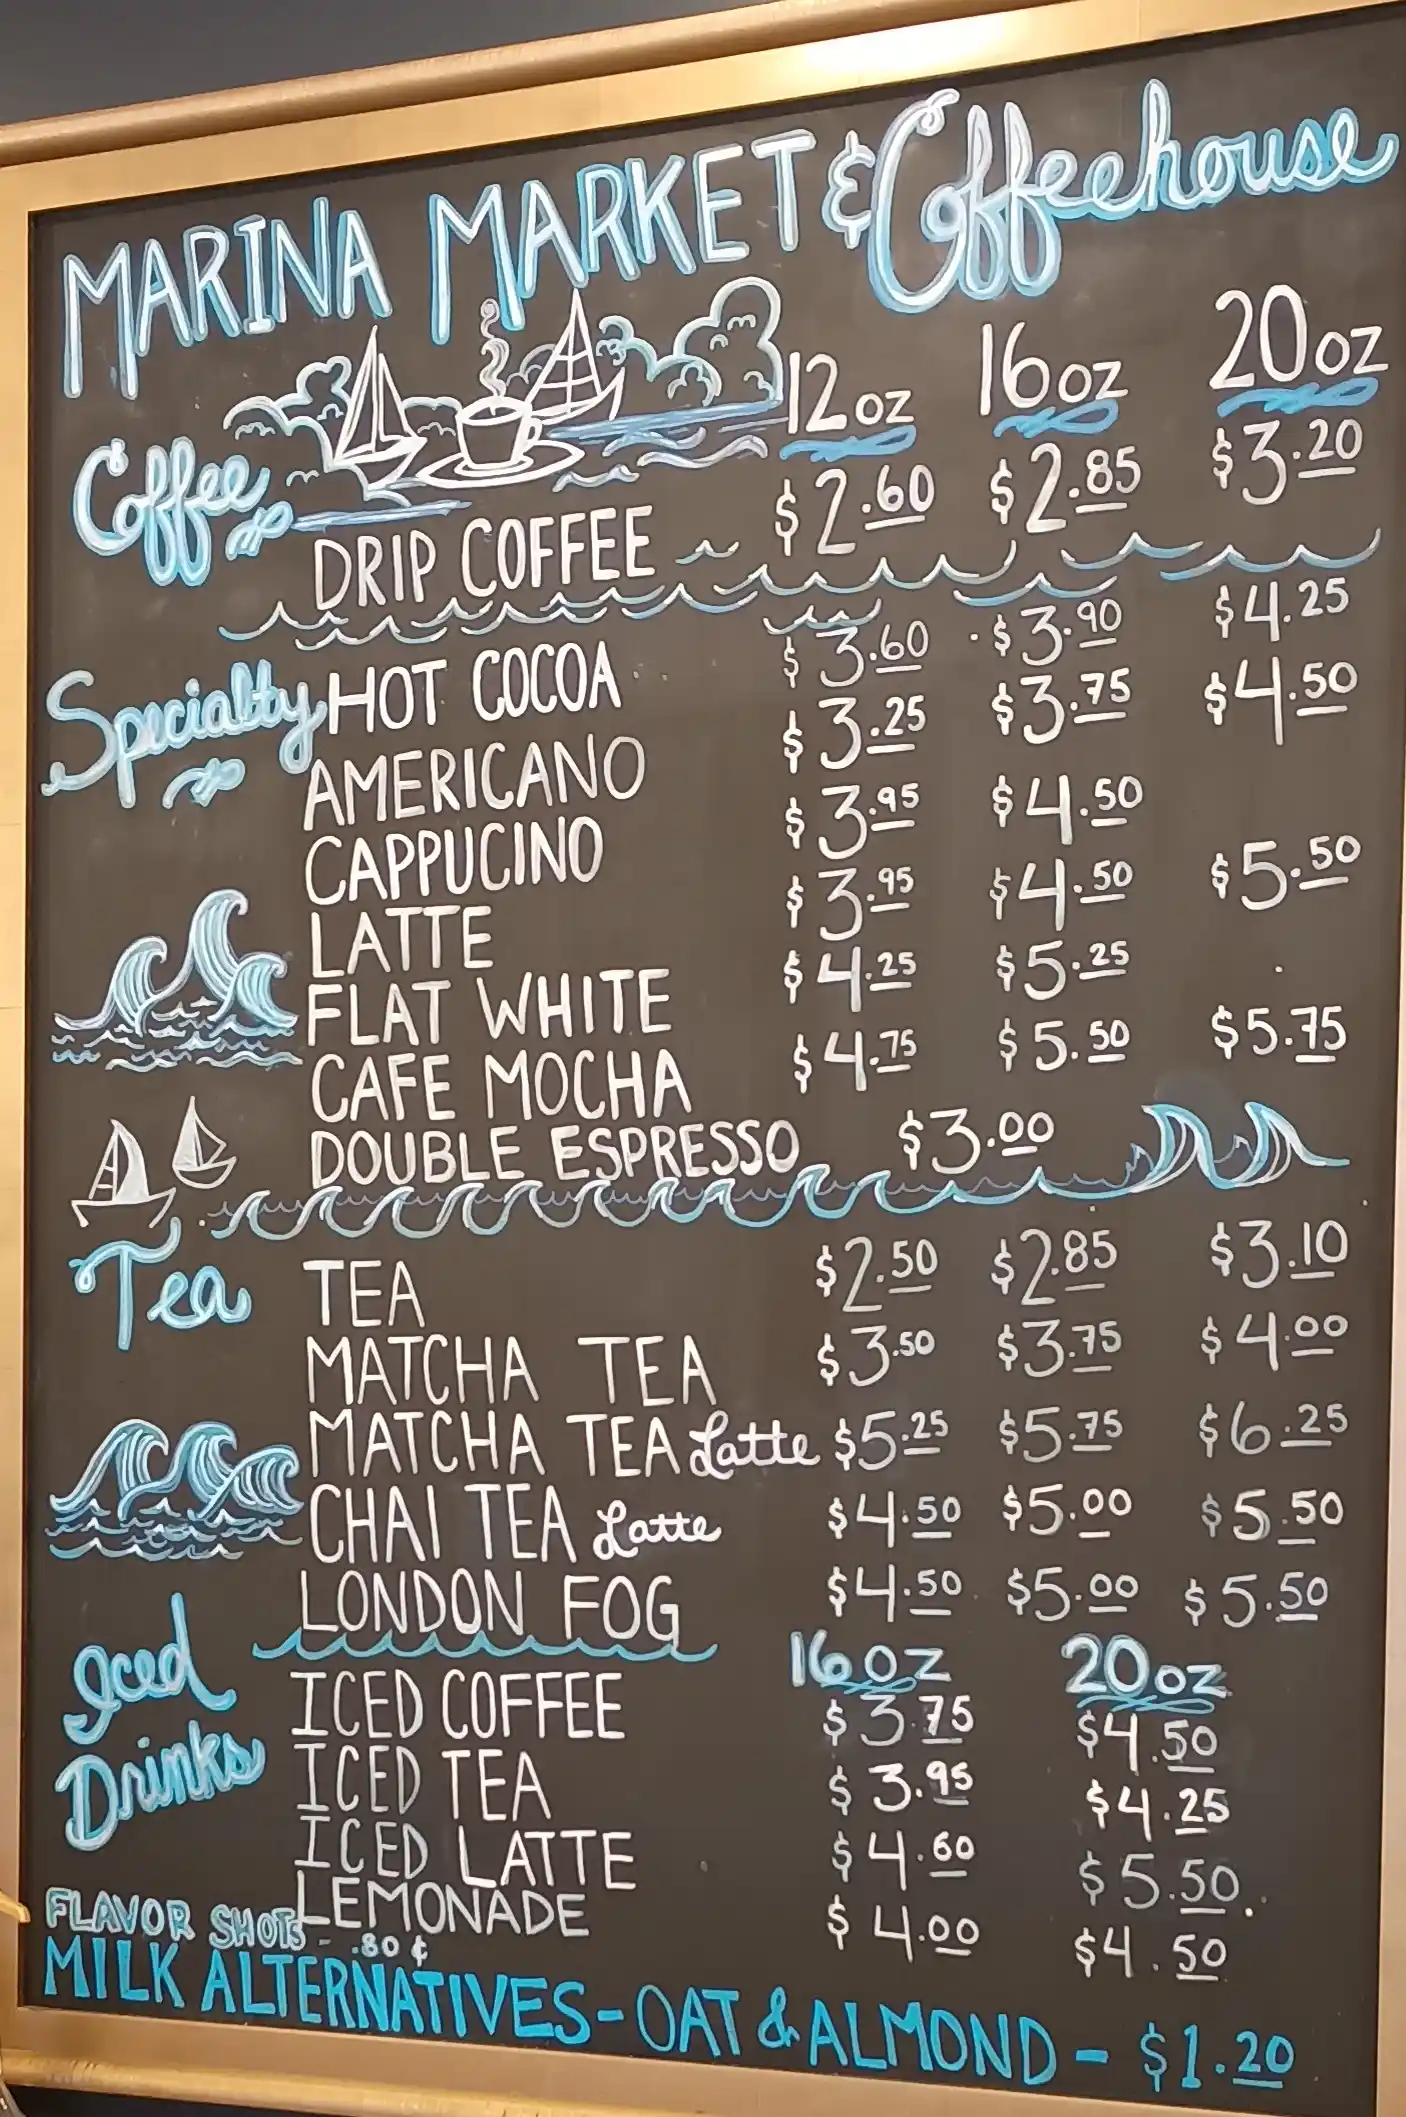 MARINA MARKET & Coffeehouse
12oz 16oz 20oz
Coffee
DRIP COFFEE $2.60 $2.85 $3.20
Specialty
HOT COCOA $3.60 $3.90 $4.25
AMERICANO $3.25 $3.75 $4.50
CAPPUCINO $3.95 $4.50
LATTE $3.95 $4.50 $5.50
FLAT WHITE $4.25 $5.25
CAFE MOCHA $4.75 $5.50 $5.75
DOUBLE ESPRESSO $3.00
Tea
TEA $2.50 $2.85 $3.10
MATCHA TEA $3.50 $3.75 $4.00
MATCHA TEA Latte $5.25 $5.75 $6.25
CHAI TEA Latte $4.50 $5.00 $5.50
LONDON FOG $4.50 $5.00 $5.50
Iced Drinks
16oz 20oz
ICED COFFEE $3.75 $4.50
ICED TEA $3.95 $4.25
ICED LATTE $4.60 $5.50
LEMONADE $4.00 $4.50
FLAVOR SHOTS - .80¢
MILK ALTERNATIVES - OAT & ALMOND - $1.20